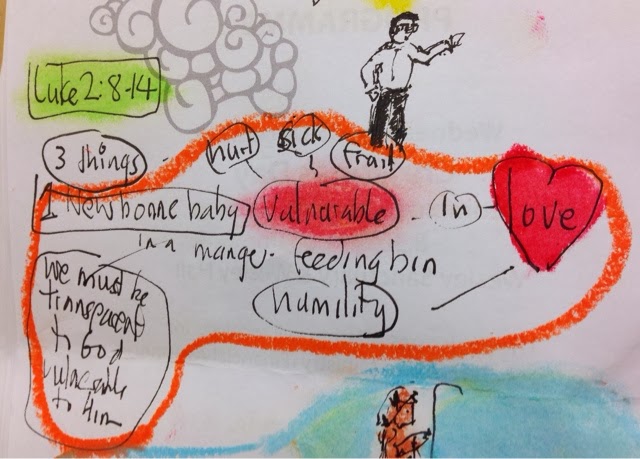 Luke 2:8-14
3 things
hurt sick frail
1 Newborne baby Vulnarable in love
in a manger. feeding bin
humility
We must be
transparent
to God
vulnarable
to Him